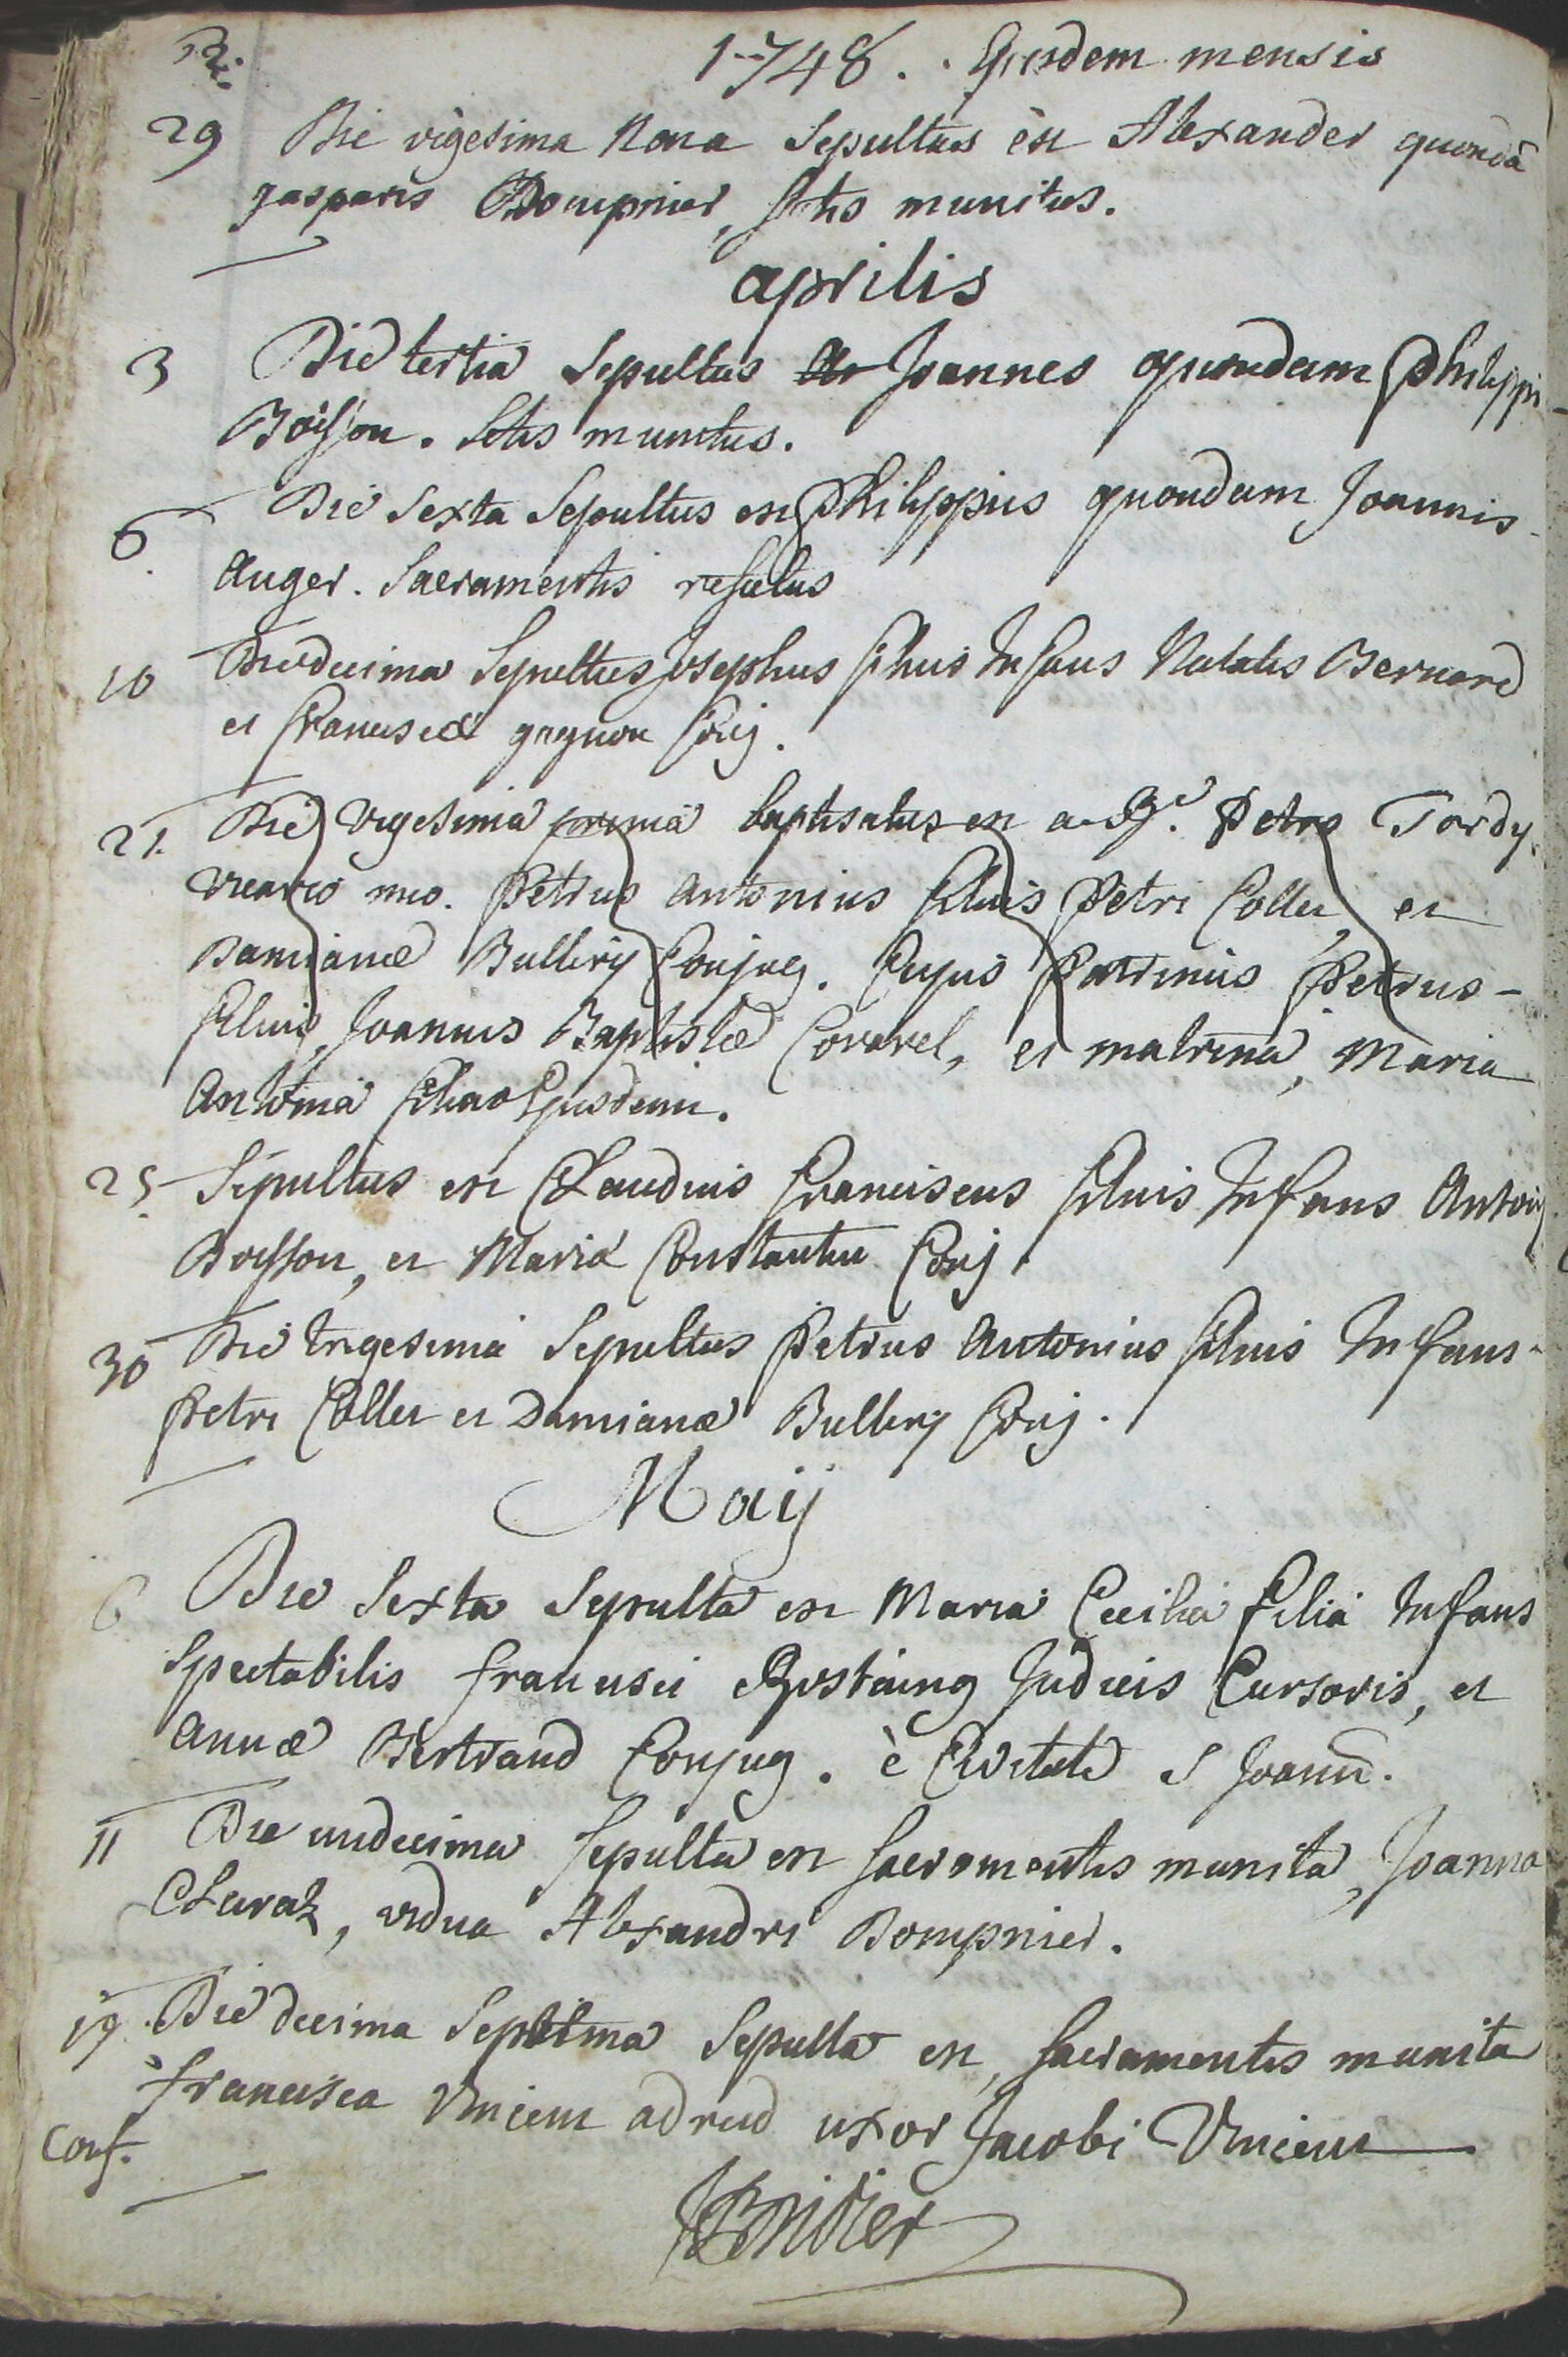 1748. Ejusdem mensis
29 Die vigesima nona Sepultus est Alexander quondã
gasparis Dompnier, Sctis munitus.
aprilis
3 Die tertia Sepultus Joannes quondam philippi
Boisson. Sctis munitus.
6. Die Sexta Sepultus est philippus quondam Joannis
Auger. Sacramentis refectus
10 Die decima Sepultus Josephus filius Infans Natalis Bernard
et franciscæ gagnon Conj.
21. Die vigesima prima baptisatus est a Rd. Petro Tordy
vicario meo. Petrus Antonius filius Petri Collet, et
Damianæ Bullerij Conjug. Cujus Patrinus Petrus
filius Joannis Baptistæ Coravel, et matrina, Maria
Antonia filia Ejusdem.
25. Sepultus est Claudius franciscus filius Infans Antonij
Boisson, et Mariæ Constantin Conj.
30 Die trigesima Sepultus Petrus Antonius filius Infans
Petri Collet et Damianæ Bullerij Conj.
Maij
6 Die Sexta Sepulta est Maria Cecilia filia Infans
Spectabilis francisci Rostaing Judicis Cursoris, et
Annæ Bertrand Conjug. è Civitate S Joann.
11 Die undecima Sepulta est Sacramentis munita, Joanna
Claraz, vidua Alexandri Dompnier.
17. Die decima Septima Sepulta est, Sacramentis munita
francisca Vincent uxor Jacobi Vincent
Conf.